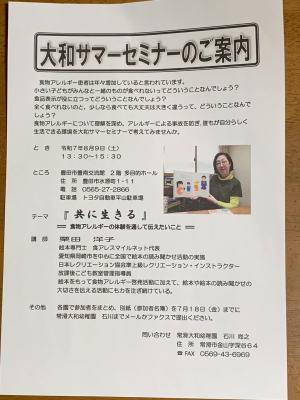 大和サマーセミナーのご案内
食物アレルギー患者は年々増加していると言われています。
小さい子どもがみんなと一緒のものが食べれないってどういうことなんでしょう?
食品表示が役に立つってどういうことなんでしょう?
全く食べれないのと、少しなら食べても大丈夫は大きく違うって、どういうことなんでしょう?
食物アレルギーについて理解を深め、アレルギーによる事故を防ぎ、誰もが自分らしく
生活できる環境を大和サマーセミナーで考えてみませんか。
と き 令和7年8月9日(土)
13:30~15:30
ところ 豊田市豊南交流館 2階 多目的ホール
住 所 豊田市水源町1-11
電 話 0565-27-2866
駐車場 トヨタ自動車平山駐車場
テーマ 『 共に生きる 』
== 食物アレルギーの体験を通して伝えたいこと ==
講 師 栗田 洋子
絵本専門士 食アレスマイルネット代表
愛知県岡崎市を中心に全国で絵本の読み聞かせ活動の実施
日本レクリエーション協会準上級レクリエーション・インストラクター
放課後こども教室管理指導員
絵本をもって食物アレルギー啓発活動に加えて、絵本や絵本の読み聞かせの
大切さを伝える活動にも力を注ぎ続けている。
その他 各園で参加者をまとめ、別紙(参加者名簿)を7月18日(金)までに
常滑大和幼稚園 石川までメールかファクスで提出ください。
問い合わせ 常滑大和幼稚園 石川 尚之
住 所 常滑市金山字深谷64
☎ FAX 0569-43-6969